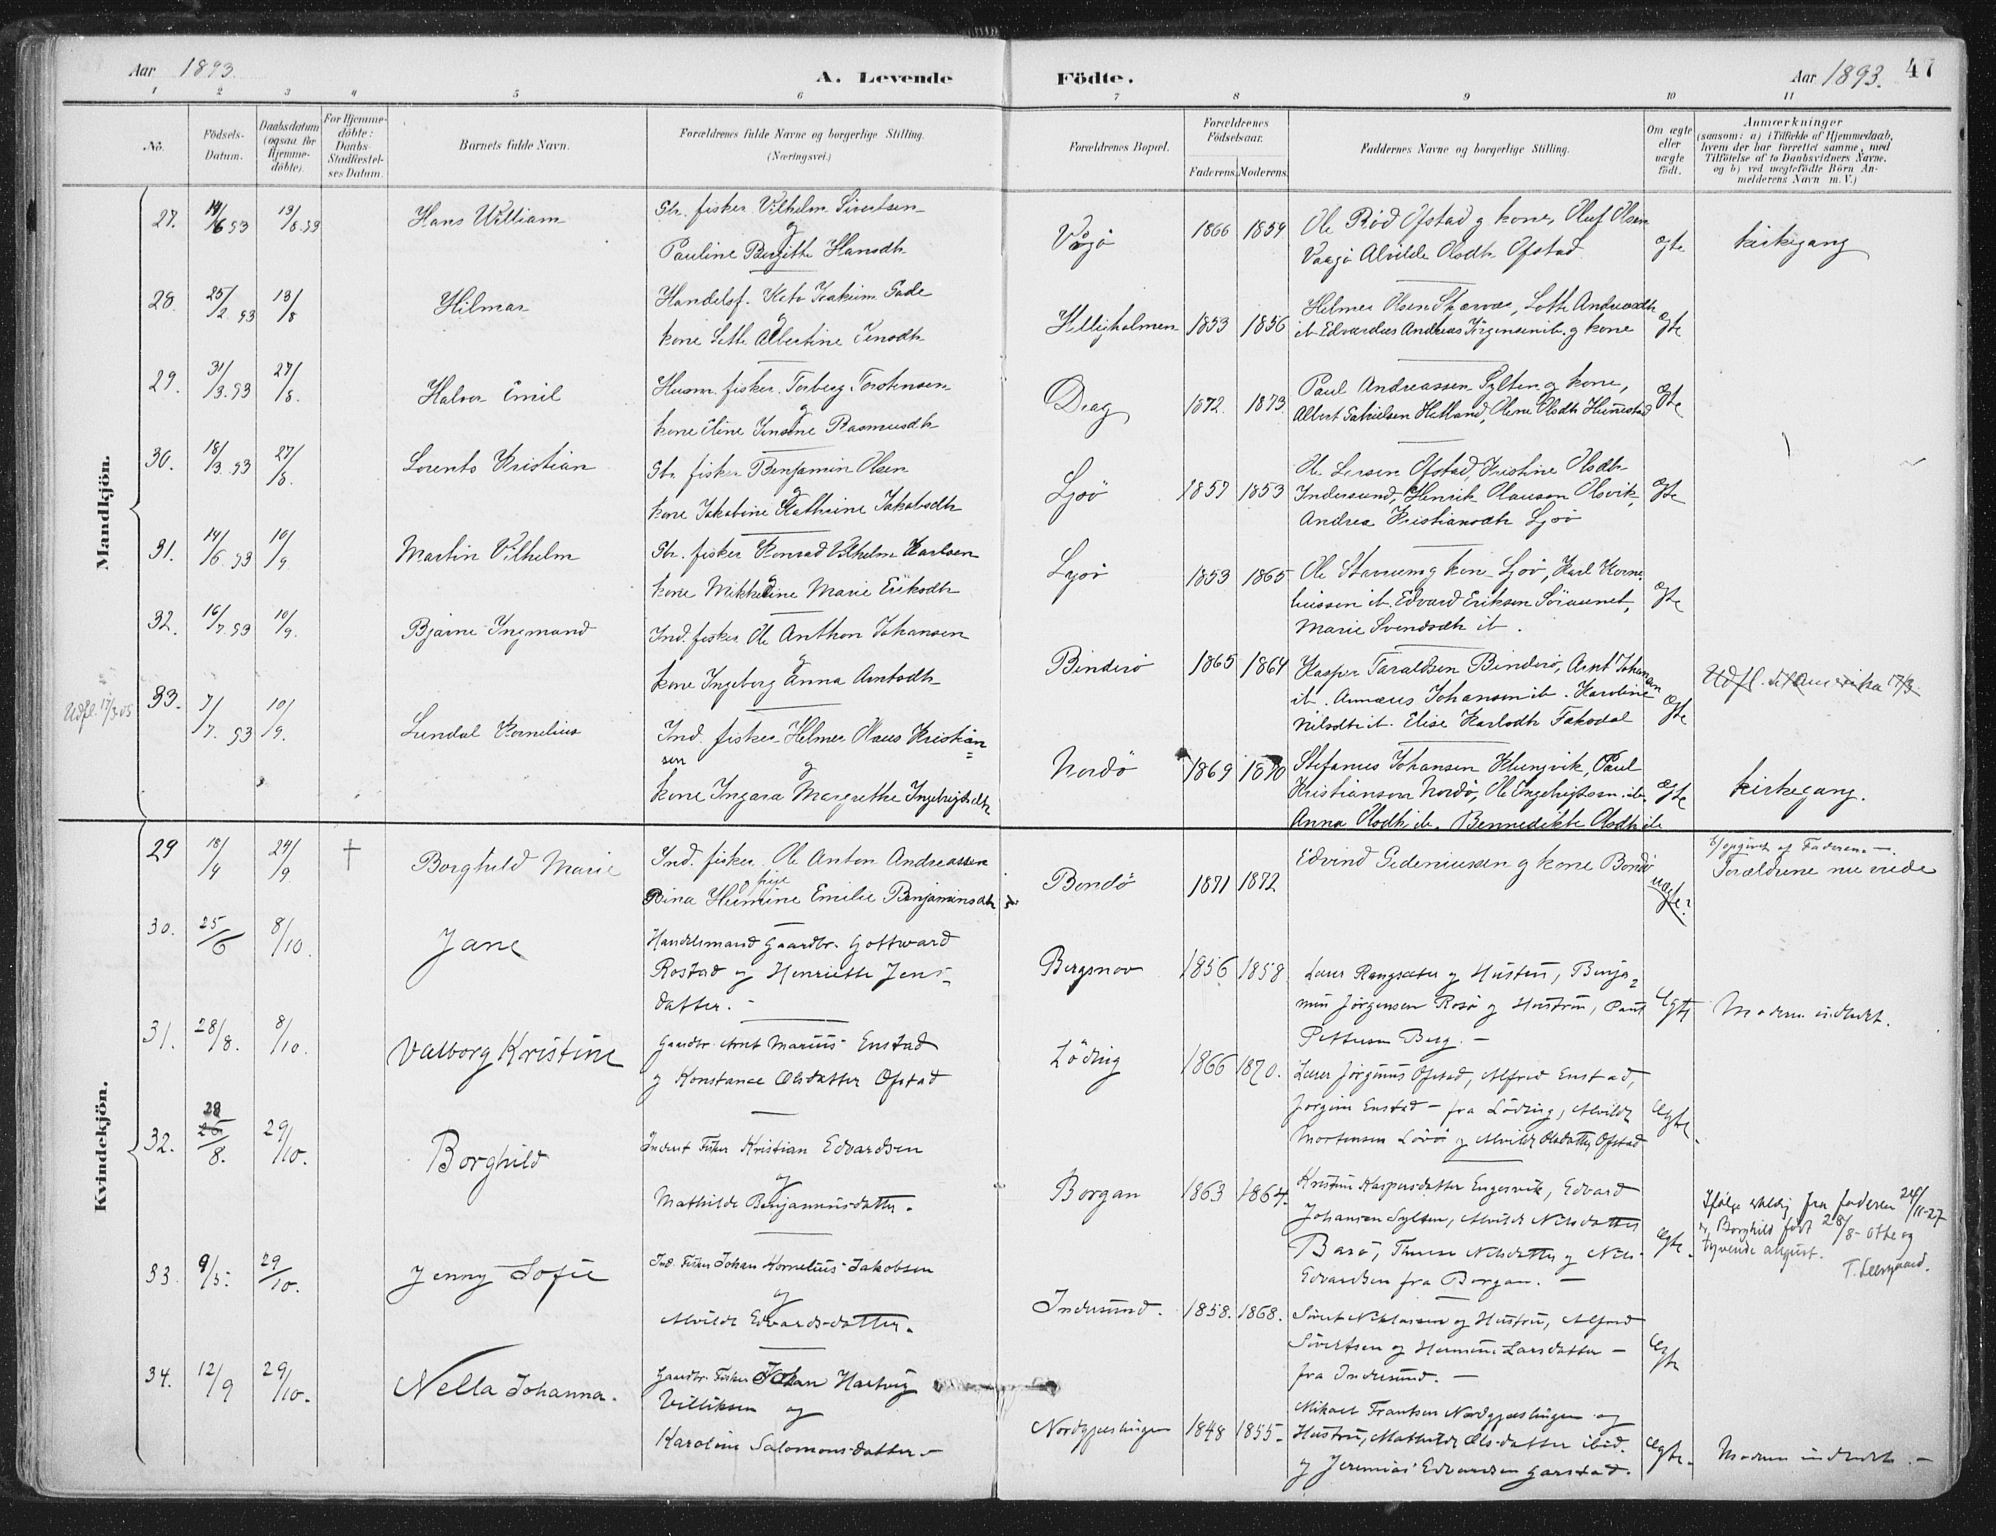 Aar 1893.
A. Levende Födte.
Aar 1893. 47
1 2 3 4 5 6 7 8 9 10 11
No.
Födsels-
Datum.
Daabsdatum
(ogsaa for
Hjemme-
döbte).
For Hjemme-
döbte:
Daabs-
Stadfæstel-
ses Datum.
Barnets fulde Navn.
Forældrenes fulde Navne og borgerlige Stilling.
(Næringsvei.)
Forældrenes Bopæl.
Forældrenes
Födselsaar.
Faderens. Moderens.
Faddernes Navne og borgerlige Stilling.
Om ægte
eller
uægte
födt.
Anmærkninger
(saasom: a) i Tilfælde af Hjemmedaab,
hvem der har forrettet samme, med
Tilföielse af to Daabsvidners Navne,
og b) ved uægtefödte Börn An-
melderens Navn m. V.)
Mandkjön.
27. 14/6 93 13/8.93 Hans William
Str. fisker Vilhelm Sivertsen
og
Pauline Bergitte Hansdtr
Vågö 1866 1859
Ole Röd Ofstad g kone, Oluf Olsen
Vaagö Alvilde Olsdtr Ofstad
ægte kirkegang
28. 25/2 93 13/8 Hilmar
Handelsf. Keto Joakim Gade
kone Sette Albertine Jensdtr
Helligholmen 1853 1856
Helmer Olsen Skærvær, Lotte Andreasdtr
ib Edvardus Andreas Jörgensen ib. g kone
Ægte
29. 31/3.93 27/8. Halvor Emil
Husm. fisker. Torberg Torstensen
og
kone Eline Jensine Rasmusdtr
Drag 1872. 1873.
Paul Andreassen Sylten g kone,
Albert Hetland, Olene Olsdtr Hunestad
Ægte
30. 18/3 93 27/8. Lorents Kristian
Str. fisker Benjamin Olsen
og
kone Jakobine Kathrine Jakobsdtr
Ljoö 1857 1853
Ole Larsen Ofstad, Kristine Olsdtr
Indersund, Henrik Olausen Olsvik,
Andrea Kristiansdtr Ljoö
Ægte
31. 14/6 93 10/9 Martin Vilhelm
Str. fisker Konrad Vilhelm Karlsen
kone Mikkeline Marie Eriksdtr
Lyoö 1853 1865
Ole g kone Ljoö, Karl Korne-
liussen ib. Edvard Eriksen
Marie Svendsdtr ib.
Ægte
32. 16/7 93 10/9. Bjarne Ingmand
Ind. fisker Ole Anthon Johansen
og
kone Ingeborg Anna Arntsdtr
Binderö 1865 1864
Kasper Taraldsen Binderö, Arnt Johansen
ib. Annæus Johansen ib. Karoline
Nilsdtr ib. Elise Karlsdtr Faksdal
Ægte Udfl. til Amerika 17/3
Udfl. 17/3 05
33. 7/7. 93 10/9. Lundal Kornelius
Ind. fisker Helmer Olaus Kristian
sen
og
kone Ingara Margrethe Ingebrigtsdtr
Nordö 1869 1870
Stefanus Johansen Klungvik, Paul
Kristiansen Nordö, Ole Ingebrigtsen ib.
Anna Olsdtr ib. Bennedikte Olsdtr ib
Ægte kirkegang.
Kvindekjön.
29 18/4 24/9 † Borghild Marie
Ind. fisker Ole Anton Andreassen
og pige
Rina Hermine Emilie Benjaminsdtr
Bondö 1871 1872
Edvind Gideniussen g kone Bondö
uægte?
b/ opgivet af Faderen.
Forældrene nu viede
30. 25/6 8/10. Jane
Handelsmand Gaardbr. Gottward
Rostad og Henriette Jens-
datter.
Bergsnov 1856 1858
Lærer Rangsæter og Hustru, Benja-
min Jörgensen Rosö og Hustru, Paul
Pettersen Berg.
Ægte Moderen indledet.
31. 28/8. 8/10. Valborg Kristine
Gaardbr. Arnt Marius Enstad
g Konstance Olsdatter Ofstad
Löding 1866 1870.
Lærer Jörginus Ofstad, Alfred Enstad,
Jörgine Enstad - fra Löding, Alvilde
Mortensen Lövö og Alvilde Olsdatter Ofstad
Ægte.
32. 28/8. 29/10. Borghild
Inderst Fisker Kristian Edvardsen
og
Mathilde Benjaminsdatter.
Borgan 1863 1864.
Kristine Kaspersdatter Engesvik, Edvard
Johansen Sylten, Alvilde Nilsdatter
Barö, Therese Nilsdatter og Nils
Edvardsen fra Borgan.
Ægte.
Ifölge erklæg fra faderen 24/11-27
er Borghild fodt 28/8 - otte og
tyvende august.
T. Leergaard.
33. 9/5. 29/10. Jenny Sofie
Ind. Fisker Johan Kornelius Jakobsen
og
Alvilde Edvardsdatter.
Indersund. 1858. 1868.
Sivert Niklassen og Hustru, Alfred
Sivertsen og Hermine Larsdatter -
fra Indersund.
Ægte
34. 12/9 29/10. Nella Johanna.
Gaardbr. Fisker Johan Hartvig
Villiksen og
Karoline Salomonsdatter
Nordgjæslingen 1848 1855.
Mikael Frantsen Nordgjæslingen og
Hustru, Mathilde Olsdatter ibid.
og Jeremias Edvardsen Garstad.
Ægte. Moderen indledet.